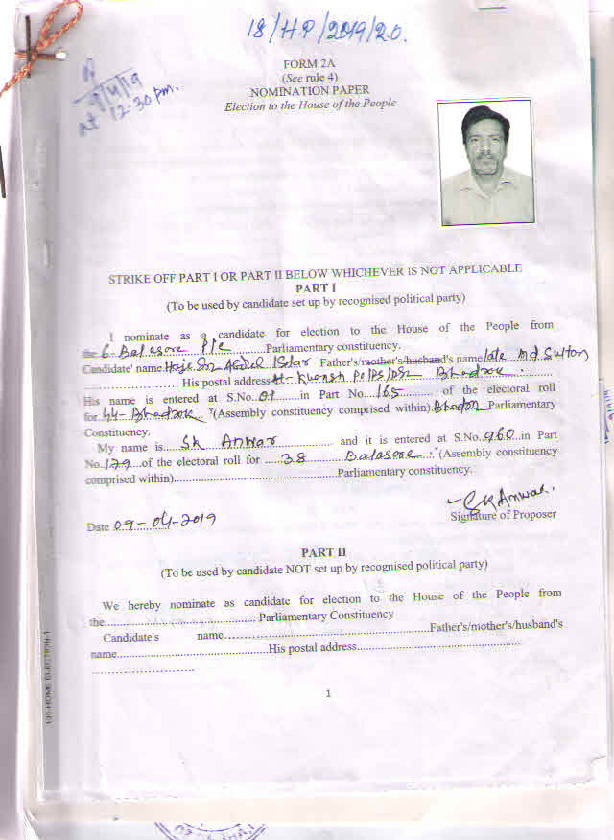 18/HP/2019/20.
FORM 2A
(See rule 4)
NOMINATION PAPER
Election to the House of the People
9/4/19
at 12.30 pm.
STRIKE OFF PART I OR PART II BELOW WHICHEVER IS NOT APPLICABLE
PART I
(To be used by candidate set up by recognised political party)
I nominate as a candidate for election to the House of the People from
the 6. Balasore P/C Parliamentary constituency.
Candidate' name Father's/mother's/husband's name late Md Sultan
His postal address At- Bhadrak.
His name is entered at S.No. 01 in Part No. 165 of the electoral roll
for 44- Bhadrak *(Assembly constituency comprised within) Parliamentary
Constituency.
My name is SK Anwar and it is entered at S.No. 960 in Part
No. 129 of the electoral roll for 38 Balasore *(Assembly constituency
comprised within) Parliamentary constituency.
SK Anwar.
Date 09-04-2019 Signature of Proposer
PART II
(To be used by candidate NOT set up by recognised political party)
We hereby nominate as candidate for election to the House of the People from
the Parliamentary Constituency
Candidate's name Father's/mother's/husband's
name His postal address
1